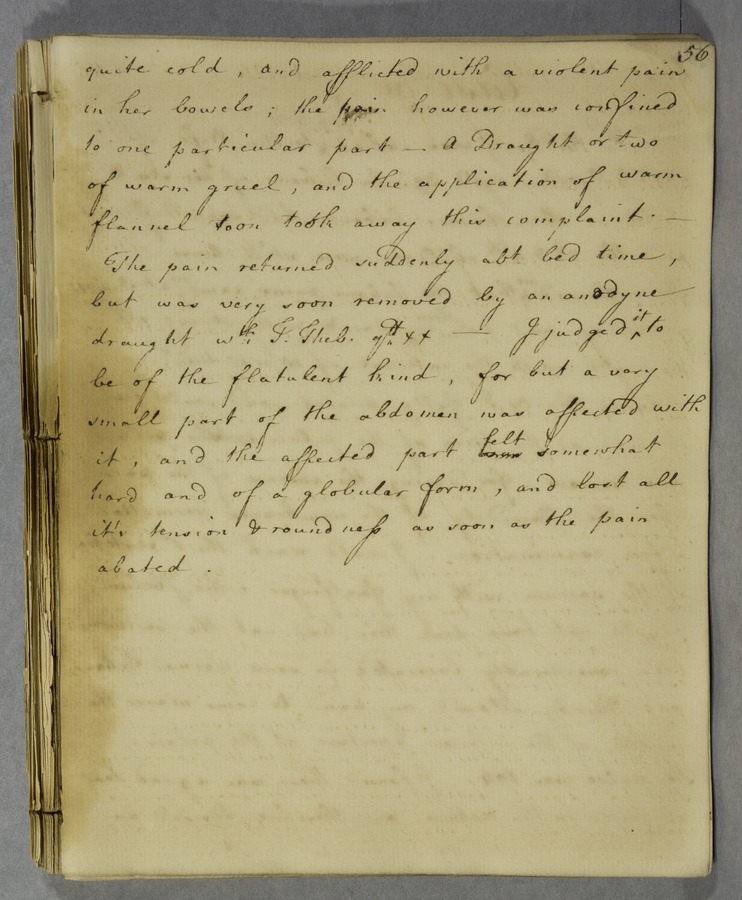 56
quite cold, and afflicted with a violent pain
in her bowels; the pain however was confined
to one particular part — A Draught or two
of warm gruel, and the application of warm
flannel soon took away this complaint. —
The pain returned suddenly abt. bed time,
but was very soon removed by an anodyne
draught wth. T. Theb. gtt xx — I judged it to
be of the flatulent kind, for but a very
small part of the abdomen was affected with
it, and the affected part felt somewhat
hard and of a globular form, and lost all
it's tension & roundness as soon as the pain
abated.